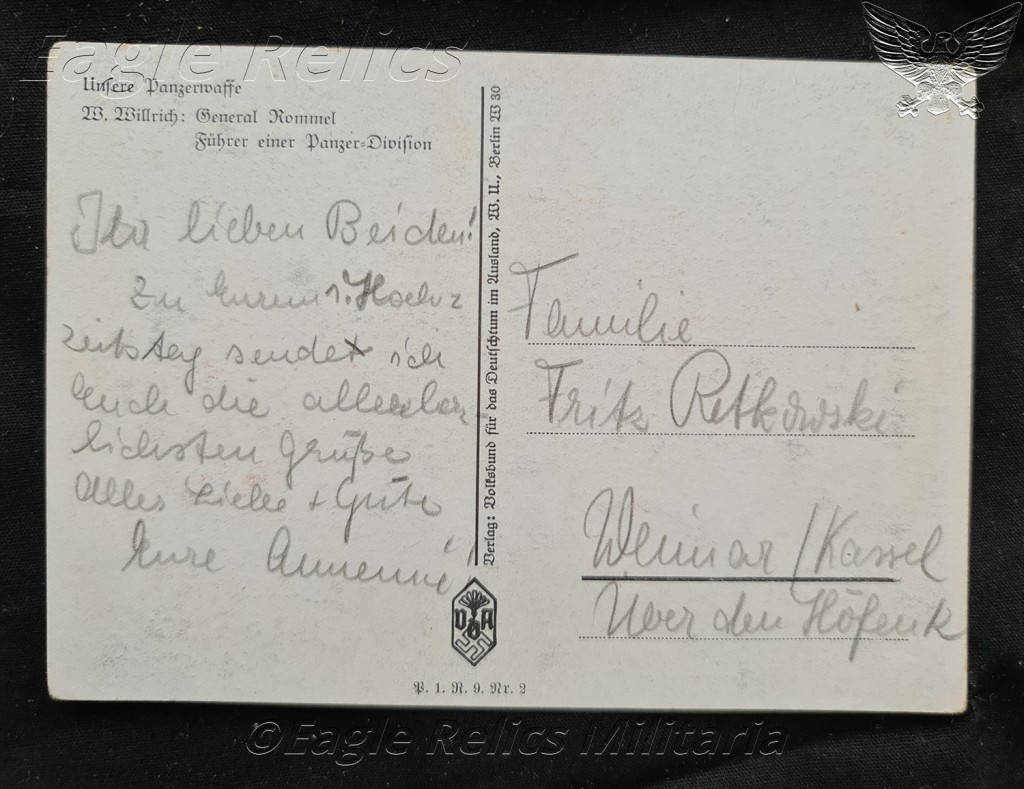 Eagle Relics
Unsere Panzerwaffe
W. Willrich: General Rommel
Führer einer Panzer-Division
Ihr lieben Beiden!
Zu Eurem 1. Hoch=
zeitstag sendet ich
Euch die allerherz-
lichsten Grüße
Alles Liebe + Gute
Eure Annemie
Verlag: Volksbund für das Deutschtum im Ausland, W. U., Berlin W 30
VDA
P. 1. R. 9. Nr. 2
Familie
Fritz Retkowski
Weimar/Kassel
Über den Höfen
©Eagle Relics Militaria